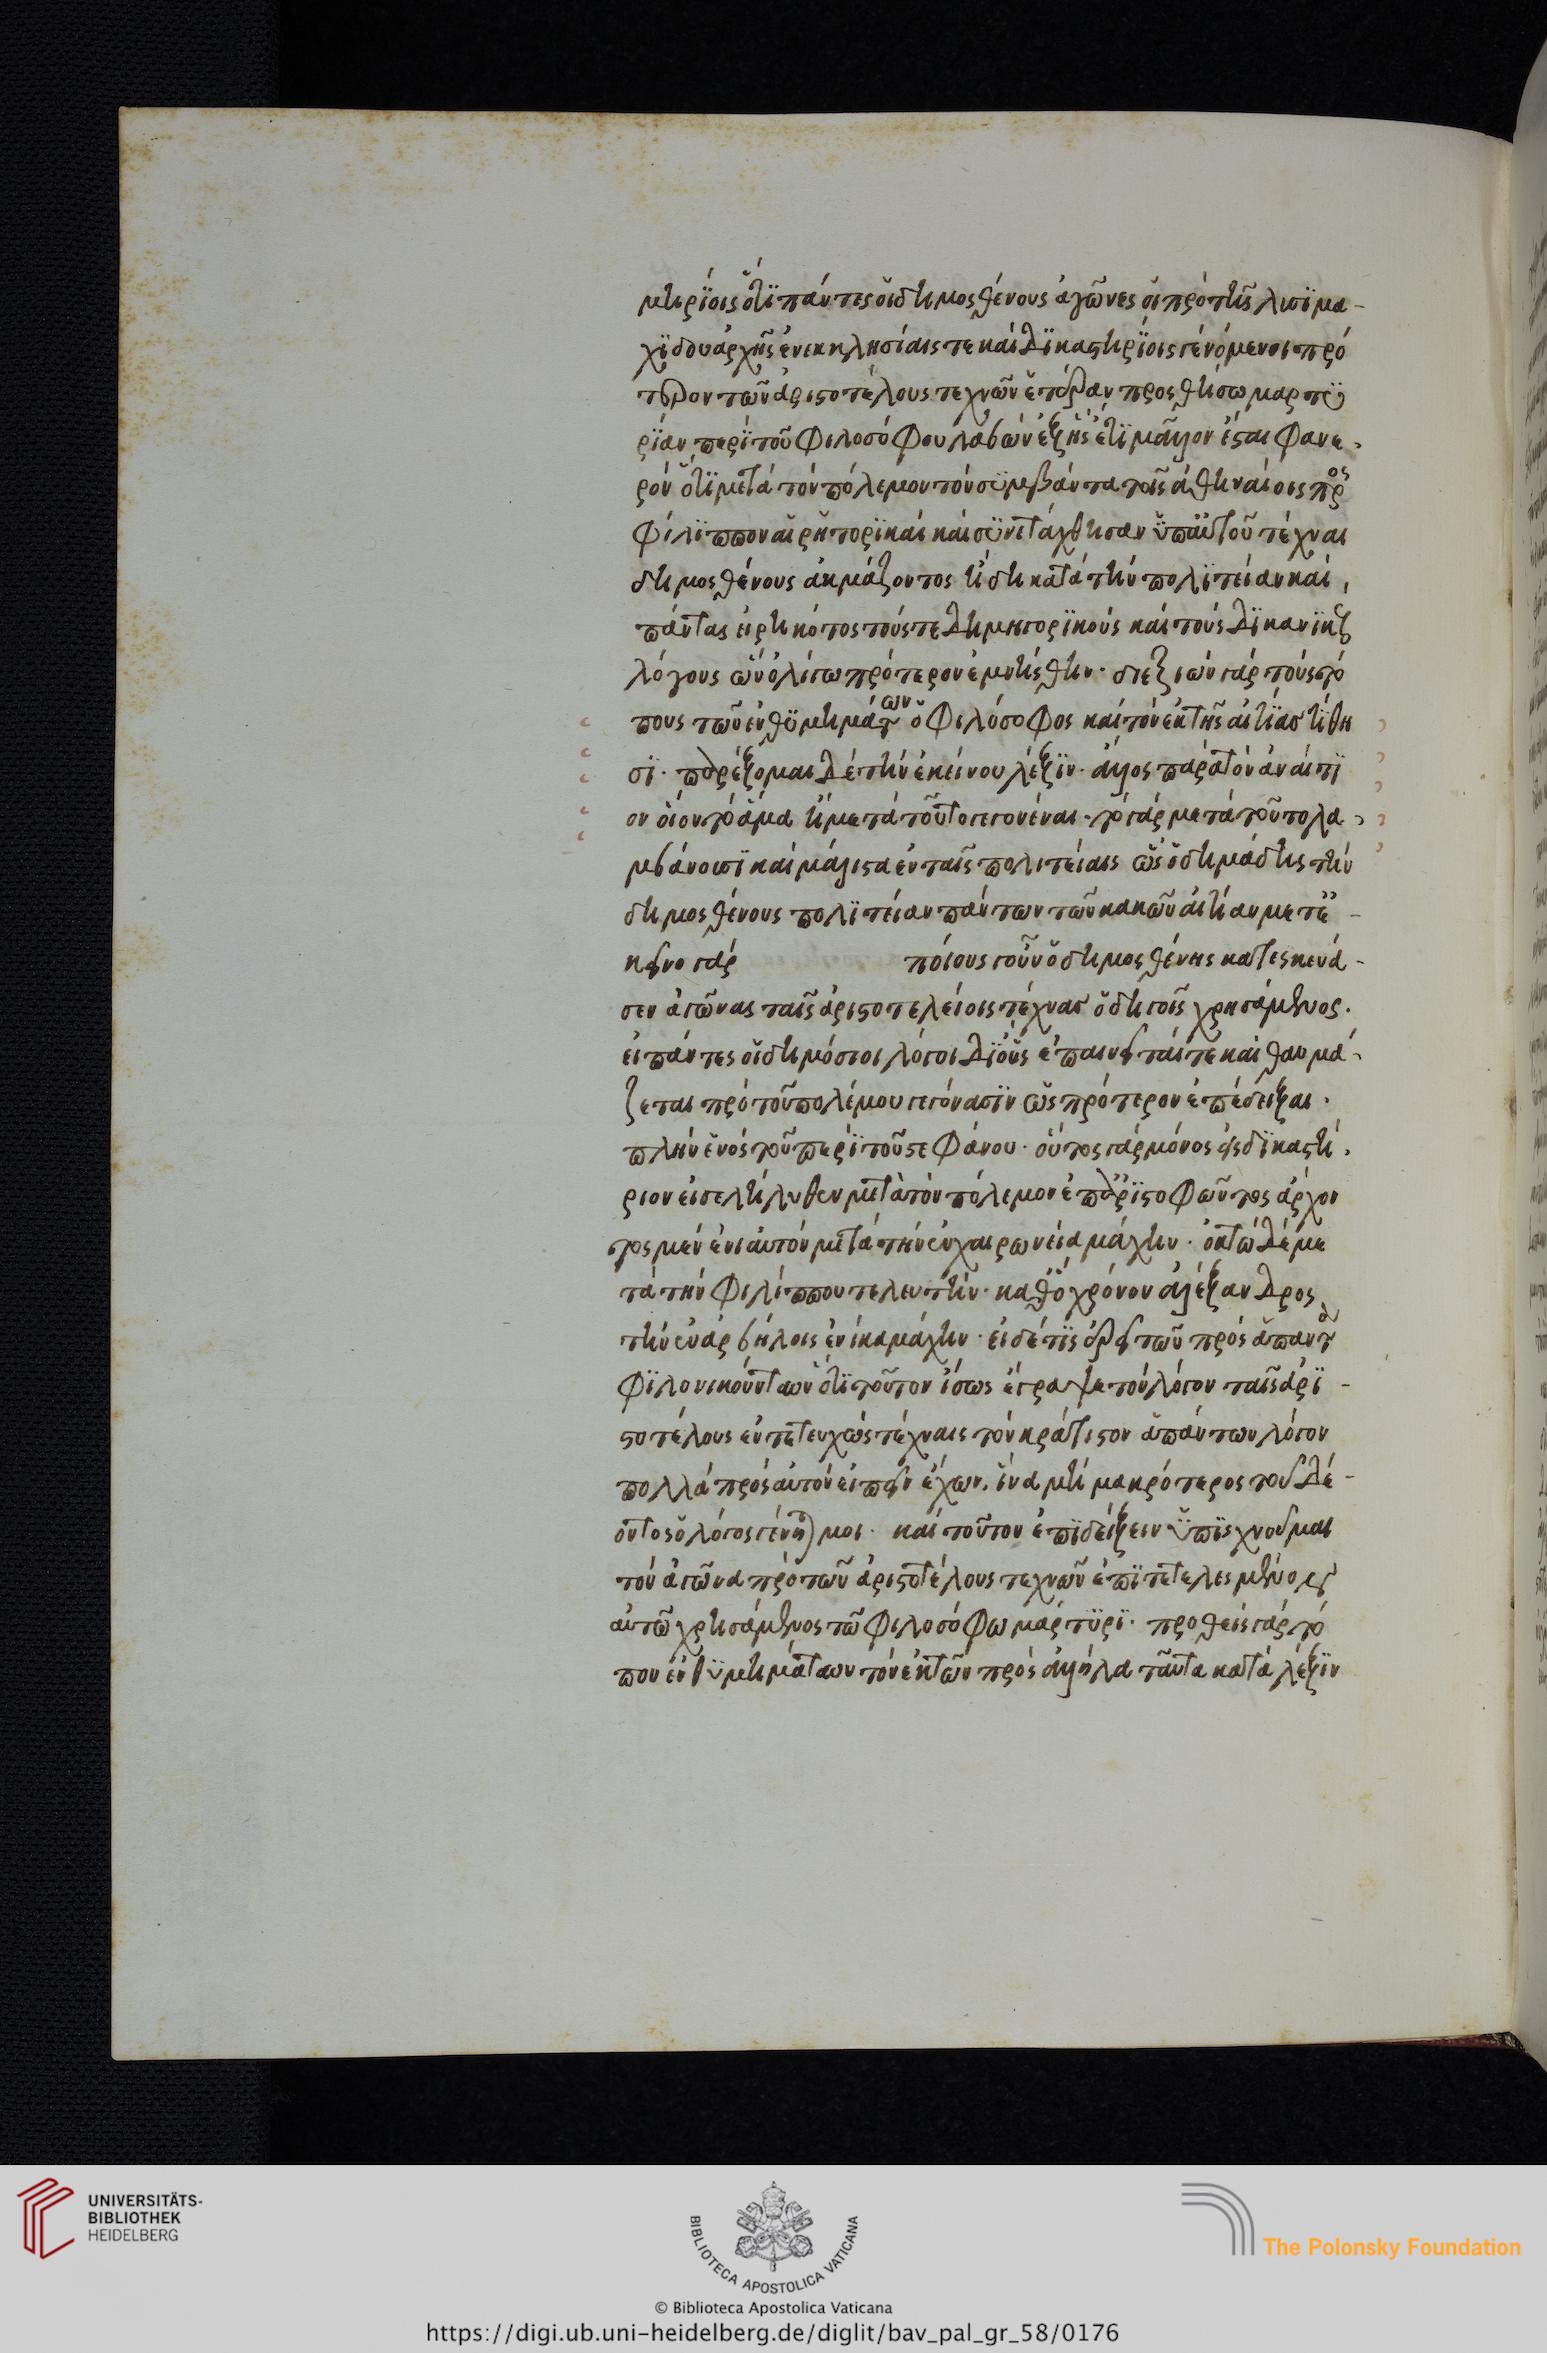 μτηρίοις ὅτι πάντες οἱ δημοσθένους ἀγῶνες οἱ πρὸ τῆς λυσιμα-
χίδου ἀρχῆς ἐν ἐκκλησίαις τε καὶ δικαστηρίοις γενόμενοι πρό
τερον τῶν ἀριστοτέλους τεχνῶν ἐτέραν προσθήσω μαρτυ
ρίαν περὶ τοῦ φιλοσόφου λαβὼν ἐξ ἧς ἔτι μᾶλλον ἔσται φανε-
ρὸν ὅτι μετὰ τὸν πόλεμον τὸν συμβάντα τοῖς ἀθηναίοις πρὸς
φίλιππον αἱ ῥητορικαὶ καὶ συνετάχθησαν ὑπ' αὐτοῦ τέχναι
δημοσθένους ἀκμάζοντος ἤδη κατὰ τὴν πολιτείαν καὶ
πάντας εἰρηκότος τούς τε δημηγορικοὺς καὶ τοὺς δικανικοὺς
λόγους ὧν ὀλίγω πρότερον ἐμνήσθην· διεξιὼν γὰρ τοὺς τό
πους τῶν ἐνθυμημάτων ὁ φιλόσοφος καὶ τὸν ἐκ τῆς αἰτίας τίθη
σι· παρέξομαι δὲ τὴν ἐκείνου λέξιν· ἄλλος παρὰ τὸν ἀναίτι
ον οἷον τὸ ἅμα ἢ μετὰ τοῦτο γεγονέναι· τὸ γὰρ μετὰ τοῦτο λα-
μβάνουσι καὶ μάλιστα ἐν ταῖς πολιτείαις ὡς ὁ δημάδης τὴν
δημοσθένους πολιτείαν πάντων τῶν κακῶν αἰτίαν μετ' ἐ-
κεῖνο γὰρ ποίους γοῦν ὁ δημοσθένης κατεσκεύα-
σεν ἀγῶνας ταῖς ἀριστοτελείοις τέχνας ὁδηγοῖς χρησάμενος.
εἰ πάντες οἱ δημόσιοι λόγοι δι' οὓς ἐπαινεῖταί τε καὶ θαυμά-
ζεται πρὸ τοῦ πολέμου γεγόνασιν ὡς πρότερον ἐπέδειξαι.
πλὴν ἑνὸς τοῦ περὶ τοῦ στεφάνου· οὗτος γὰρ μόνος εἰς δικαστή-
ριον εἰσελήλυθεν μετὰ τὸν πόλεμον ἐπ' ἀριστοφῶντος ἄρχον
τος μὲν ἐνιαυτὸν μετὰ τὴν ἐν χαιρωνεία μάχην· ὀκτὼ δὲ με
τὰ τὴν φιλίππου τελευτήν· καθ' ὃ χρόνον ἀλέξανδρος
τὴν ἐν ἀρβήλοις ἐνίκα μάχην· εἰ δέ τις ἐρεῖ τῶν πρὸς ἅπαντα
φιλονικούντων ὅτι τοῦτον ἴσως ἔγραψε τὸν λόγον ταῖς ἀρι-
στοτέλους ἐντετευχὼς τέχναις τὸν κράτιστον ἁπάντων λόγον
πολλὰ πρὸς αὐτὸν εἰπεῖν ἔχων, ἵνα μὴ μακρότερος τοῦ δέ-
οντος ὁ λόγος γένηται μοι· καὶ τοῦτον ἐπιδείξειν ὑπισχνοῦμαι
τὸν ἀγῶνα πρὸ τῶν ἀριστοτέλους τεχνῶν ἐπιτετελεσμένον
αὐτῶ χρησάμενος τῶ φιλοσόφω μάρτυρι· προθεὶς γὰρ τό
πον ἐνθυμημάτων τὸν ἐκ τῶν πρὸς ἄλληλα ταῦτα κατὰ λέξιν
UNIVERSITÄTS-
BIBLIOTHEK
HEIDELBERG
BIBLIOTECA APOSTOLICA VATICANA
The Polonsky Foundation
© Biblioteca Apostolica Vaticana
https://digi.ub.uni-heidelberg.de/diglit/bav_pal_gr_58/0176